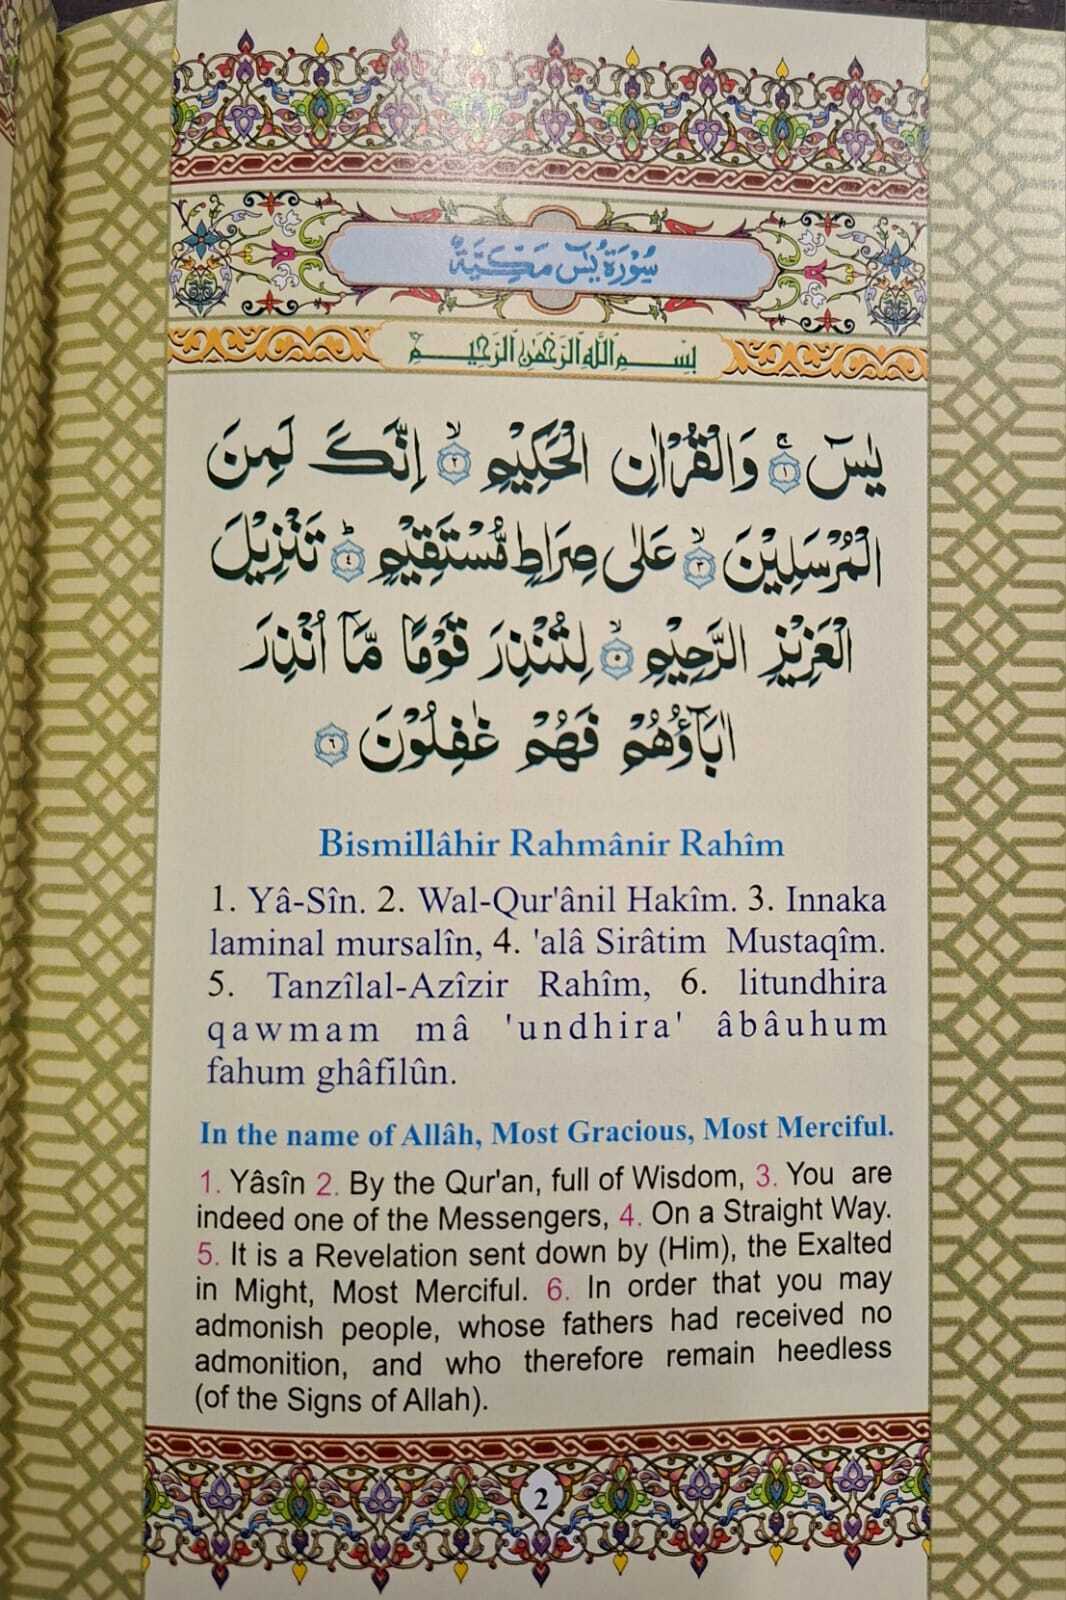 سُوْرَةُ يٰسٓ مَكِّيَّةٌ
بِسْمِ اللّٰهِ الرَّحْمٰنِ الرَّحِيْمِ
يٰسٓ ۚ ۝١ وَالْقُرْاٰنِ الْحَكِيْمِ ۙ ۝٢ اِنَّكَ لَمِنَ
الْمُرْسَلِيْنَ ۙ ۝٣ عَلٰى صِرَاطٍ مُّسْتَقِيْمٍ ؕ ۝٤ تَنْزِيْلَ
الْعَزِيْزِ الرَّحِيْمِ ۙ ۝٥ لِتُنْذِرَ قَوْمًا مَّاۤ اُنْذِرَ
اٰبَآؤُهُمْ فَهُمْ غٰفِلُوْنَ ۝٦
Bismillâhir Rahmânir Rahîm
1. Yâ-Sîn. 2. Wal-Qur'ânil Hakîm. 3. Innaka
laminal mursalîn, 4. 'alâ Sirâtim Mustaqîm.
5. Tanzîlal-Azîzir Rahîm, 6. litundhira
qawmam mâ 'undhira' âbâuhum
fahum ghâfilûn.
In the name of Allâh, Most Gracious, Most Merciful.
1. Yâsîn 2. By the Qur'an, full of Wisdom, 3. You are
indeed one of the Messengers, 4. On a Straight Way.
5. It is a Revelation sent down by (Him), the Exalted
in Might, Most Merciful. 6. In order that you may
admonish people, whose fathers had received no
admonition, and who therefore remain heedless
(of the Signs of Allah).
2